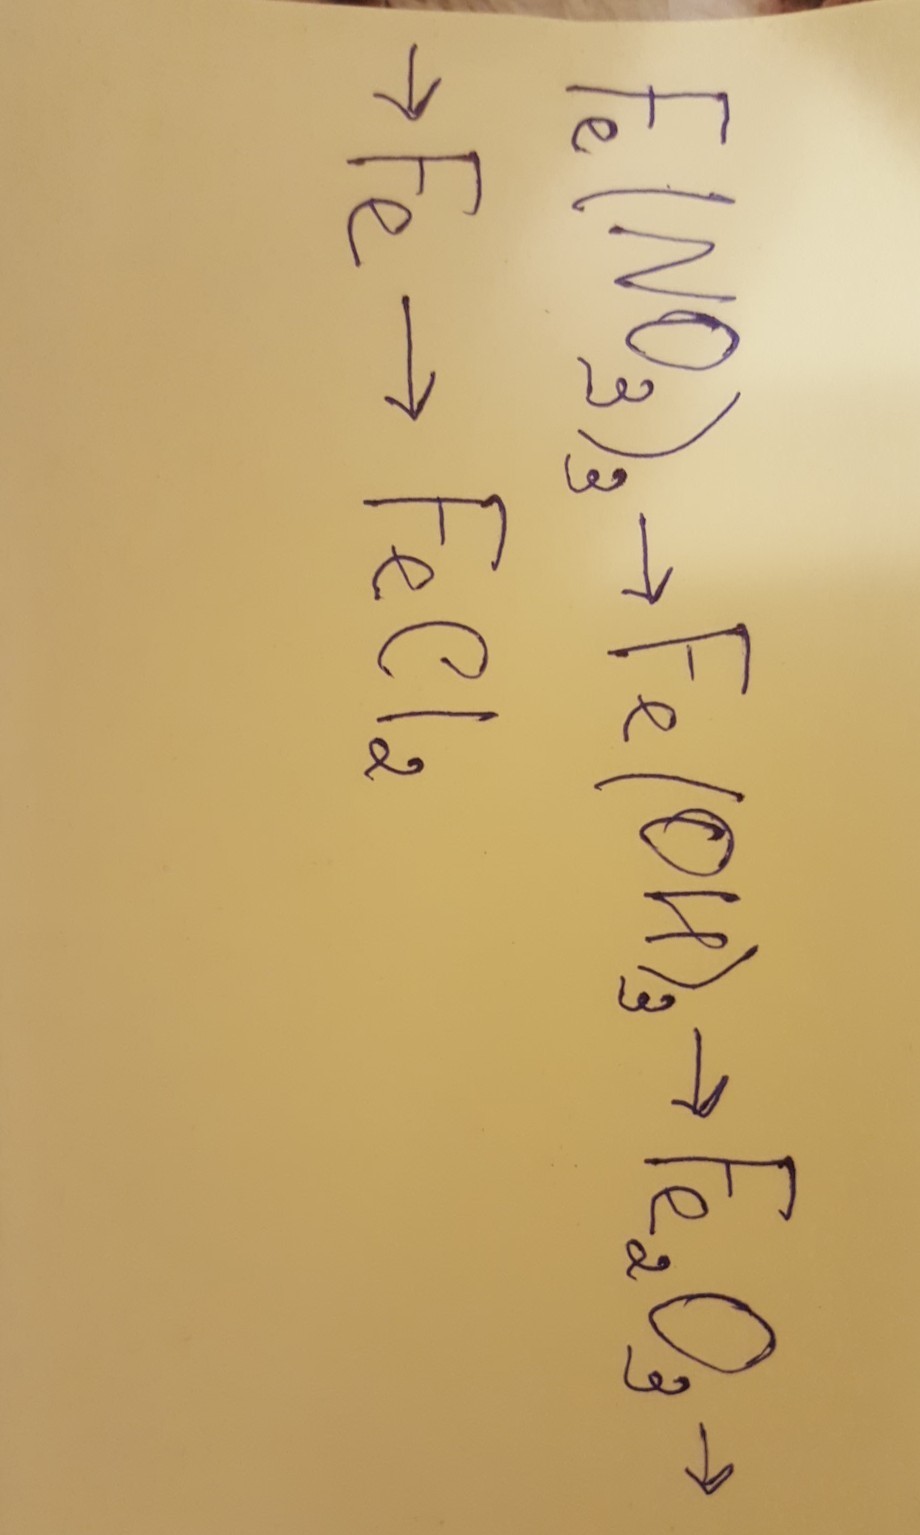 Fe(NO₃)₃ → Fe(OH)₃ → Fe₂O₃ →
→ Fe → FeCl₂